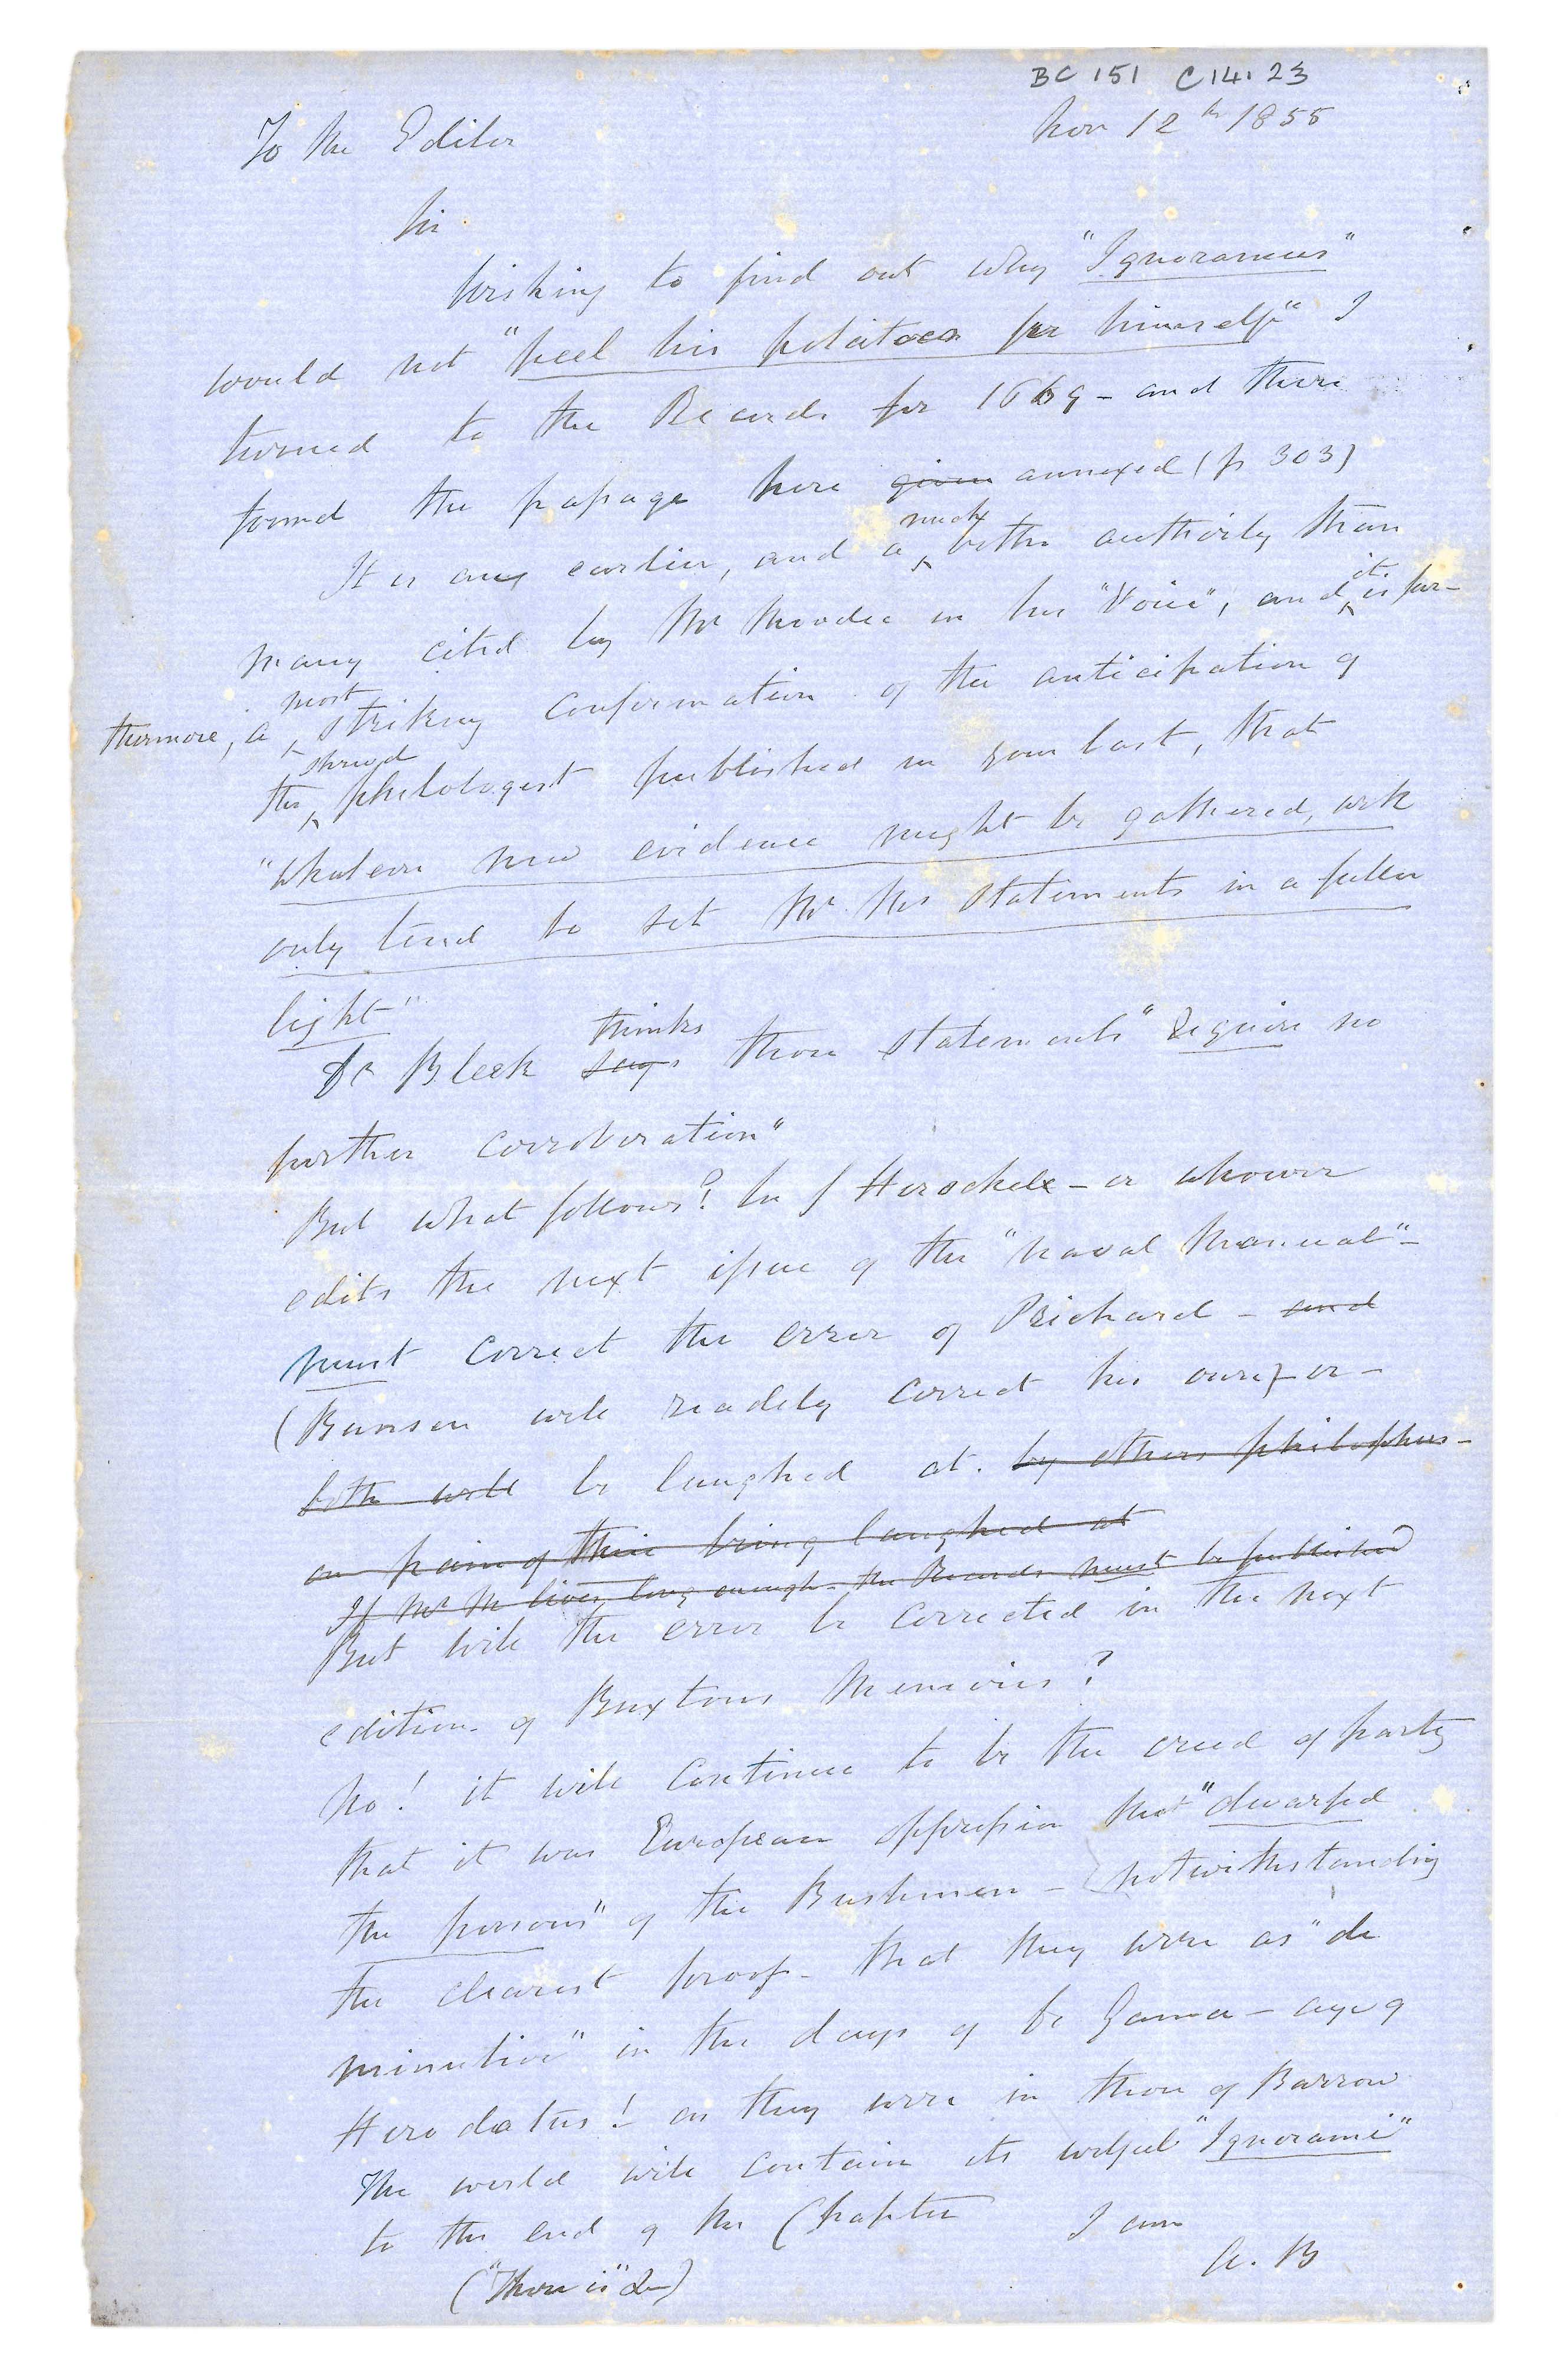 BC 151 C14.23
Nov 12th 1855
To the Editor
Sir
Wishing to find out why "Ignoramus"
would not "peel his potatoes for himself" I
turned to the Records for 1669 - and there
found the passage here given annexed (p 303)
It is an earlier, and a much better authority than
many cited by Mr Moodie in his "Voice", and it is fur-
thermore, a most striking confirmation of the anticipation of
the shrewd philologist published in your last, that
"whatever new evidence might be gathered, will
only tend to set Mr M's statements in a fuller
light"
Dr Bleek says thinks those statements "require no
further corroboration"
But what follows? Sir J Herschel - or whoever
edits the next issue of the "Naval Manual" -
must correct the error of Prichard - and
(Bunsen will readily correct his own) - or -
both will be laughed at. by others philosophers -
on pain of their being laughed at
If Mr M lives long enough - the Records must be published
But will the error be corrected in the next
edition of Buxtons Memoirs?
No! it will continue to be the creed of party
that it was European oppression that "dwarfed
the persons" of the Bushmen - notwithstanding
the clearest proof - that they were as "di
minutive" in the days of De Gama - aye of
Herodatus! as they were in those of Barrow
The world will contain its wilful "Ignorami"
to the end of the Chapter
I am
A. B
("There is" &c)